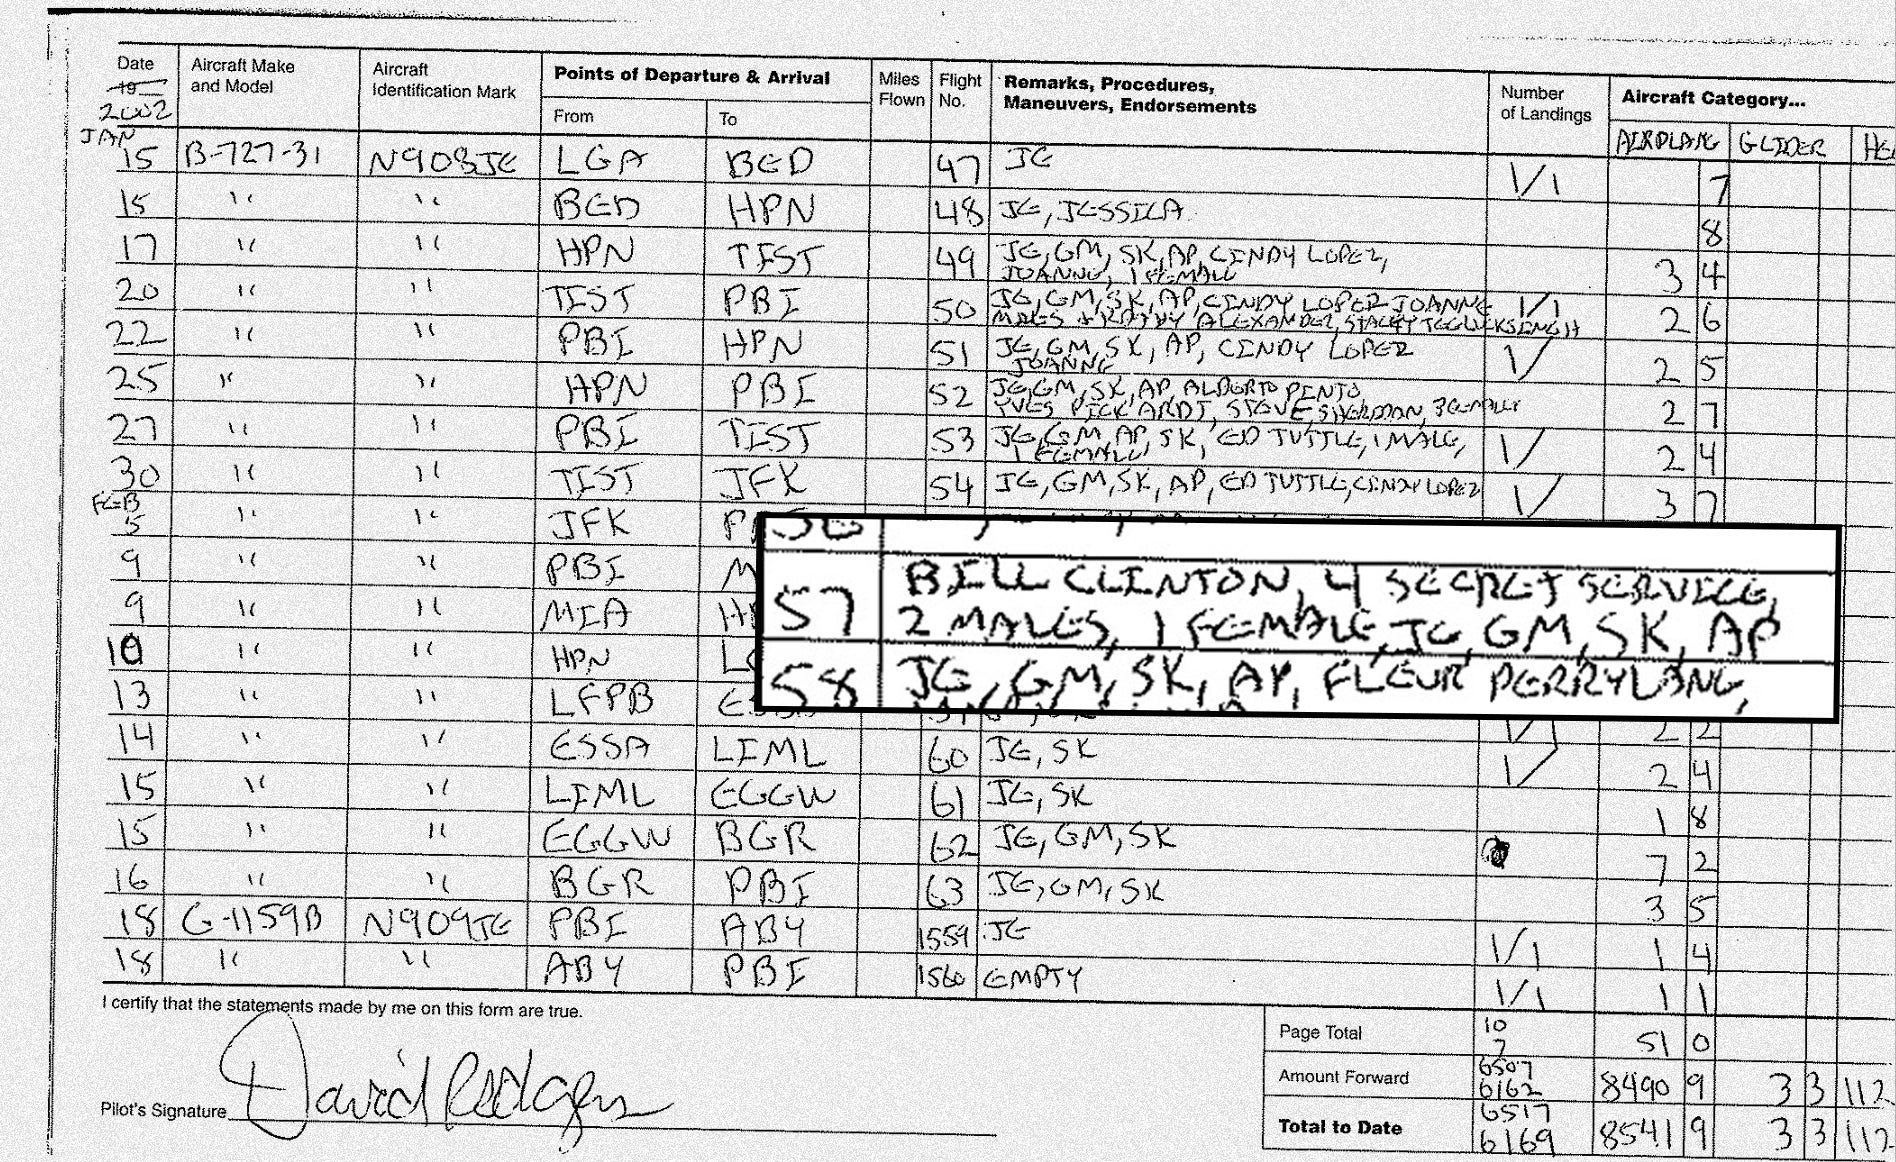 Date Aircraft Make and Model Aircraft Identification Mark Points of Departure & Arrival Miles Flown Flight No. Remarks, Procedures, Maneuvers, Endorsements Number of Landings Aircraft Category...
19
2002 From To AIRPLANE GLIDER
JAN
15 B-727-31 N908JE LGA BED 47 JE 1/1 7
15 " " BED HPN 48 JE, JESSICA 8
17 " " HPN TIST 49 JE, GM, SK, AP, CINDY LOPEZ,
JOANNE, 1 FEMALE 3 4
20 " " TIST PBI 50 JE, GM, SK, AP, CINDY LOPEZ JOANNE 1/1 2 6
ALEXANDER,
22 " " PBI HPN 51 JE, GM, SK, AP, CINDY LOPEZ 1/ 2 5
JOANNE
25 " " HPN PBI 52 JE, GM, SK, AP, ALBERTO PINTO,
YVES PICKARDT, STEVE SHERMAN, 3 FEMALE 2 7
27 " " PBI TIST 53 JE, GM, AP, SK, ED TUTTLE, 1 MALE, 1/ 2 4
1 FEMALE
30 " " TIST JFK 54 JE, GM, SK, AP, ED TUTTLE, CINDY LOPEZ 1/ 3 7
FEB
5 " " JFK
9 " " PBI
57 BILL CLINTON, 4 SECRET SERVICE,
2 MALES, 1 FEMALE, JE, GM, SK, AP
58 JE, GM, SK, AP, FLEUR PERRYLANG,
9 " " MIA
10 " " HPN
13 " " LFPB 2 2
14 " " ESSA LIML 60 JE, SK 1/ 2 4
15 " " LIML EGGW 61 JE, SK 1 8
15 " " EGGW BGR 62 JE, GM, SK 7 2
16 " " BGR PBI 63 JE, GM, SK 3 5
18 G-1159B N909JE PBI ABY 1559 JE 1/1 1 4
18 " " ABY PBI 1560 EMPTY 1/1 1 1
I certify that the statements made by me on this form are true.
Page Total 10 7 51 0
Amount Forward 6507 6162 8490 9 3 3 112
Pilot's Signature David Rodgers
Total to Date 6517 6169 8541 9 3 3 112